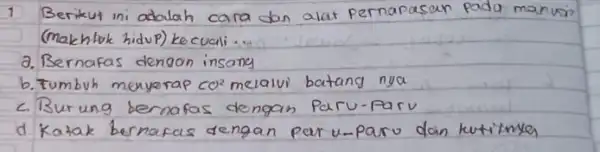 1 Berikut ini adalah cara dan alat pernapasan pada manusia
(makhluk hidup) kecuali...
a. Bernafas dengan insang
b. Tumbuh menyerap CO² melalui batang nya
c. Burung bernafas dengan Paru-Paru
d Katak bernafas dengan paru-paru dan kulitnya